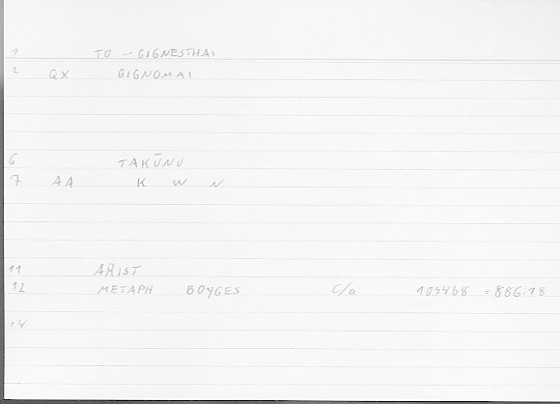 1 TO - GIGNESTHAI
2 QX GIGNOMAI
6 TAKŪNU
7 AA K W N
11 ARIST
12 METAPH BOYGES C/a 105468 = 886.18
14